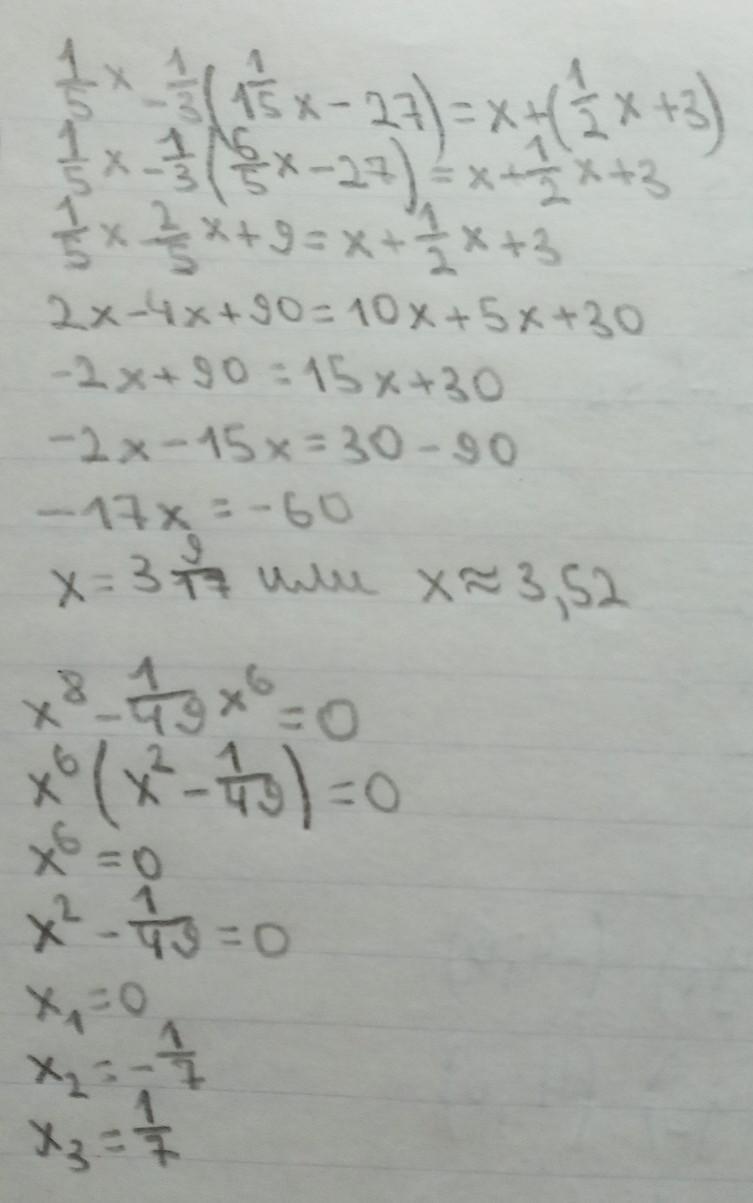 1/5 x - 1/3 (1 1/5 x - 27) = x + (1/2 x + 3)
1/5 x - 1/3 (6/5 x - 27) = x + 1/2 x + 3
1/5 x - 2/5 x + 9 = x + 1/2 x + 3
2x - 4x + 90 = 10x + 5x + 30
-2x + 90 = 15x + 30
-2x - 15x = 30 - 90
-17x = -60
x = 3 9/17 или x ≈ 3,52
x⁸ - 1/49 x⁶ = 0
x⁶ (x² - 1/49) = 0
x⁶ = 0
x² - 1/49 = 0
x₁ = 0
x₂ = - 1/7
x₃ = 1/7